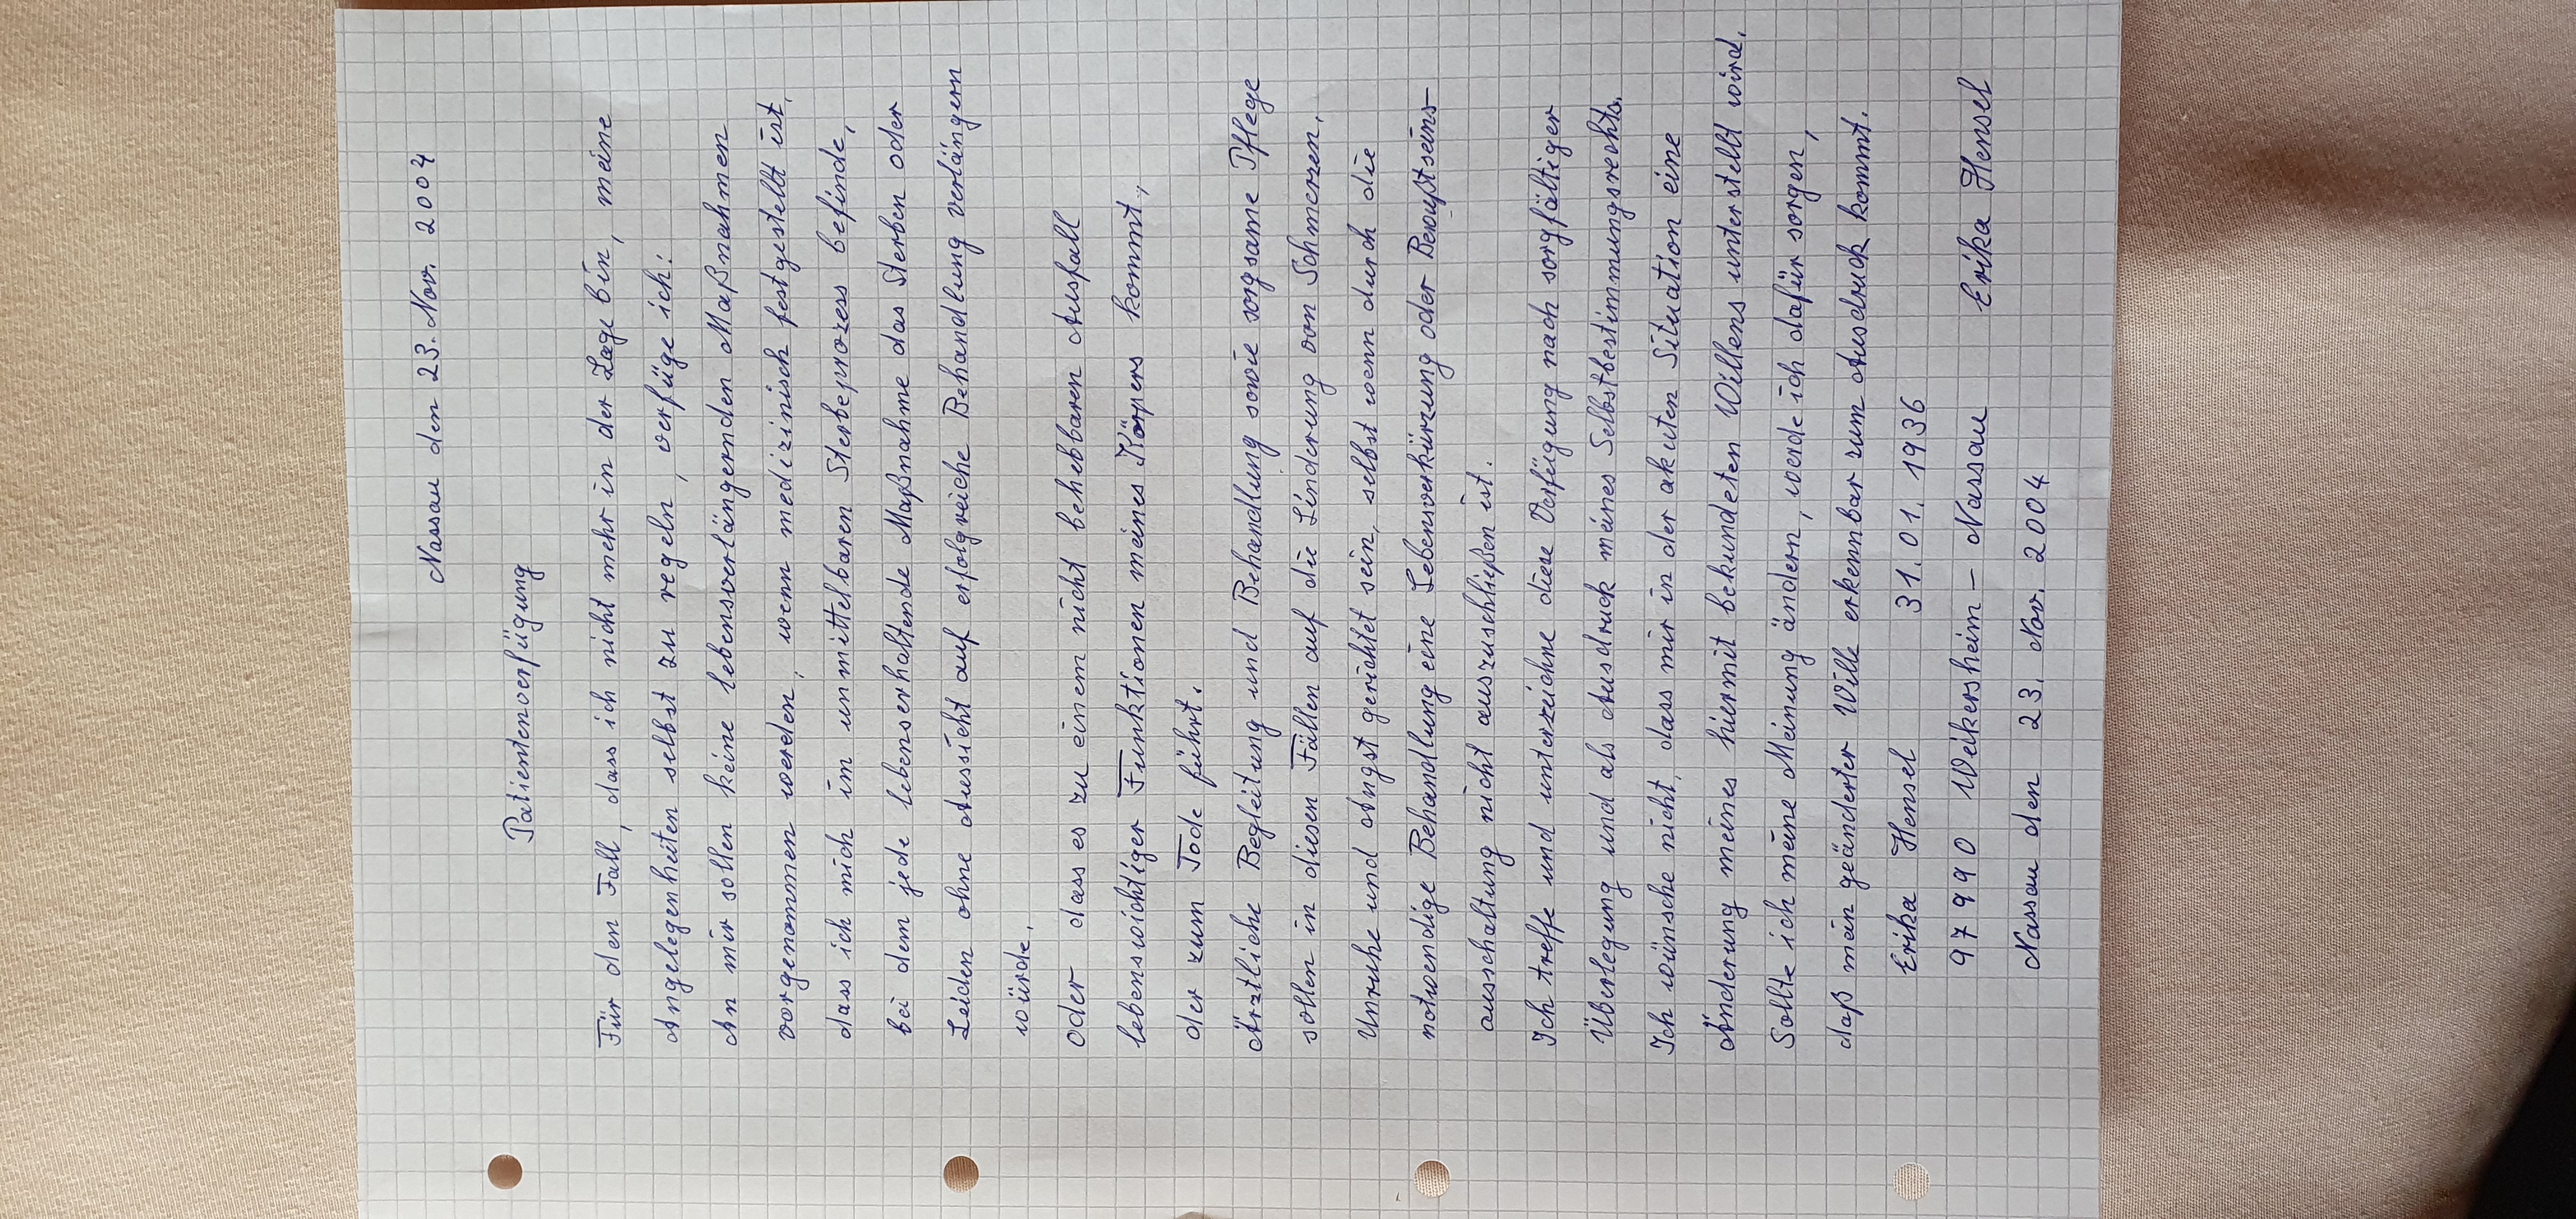 Nassau den 23. Nov. 2004
Patientenverfügung
Für den Fall, dass ich nicht mehr in der Lage bin, meine
Angelegenheiten selbst zu regeln, verfüge ich:
An mir sollen keine lebensverlängernden Maßnahmen
vorgenommen werden, wenn medizinisch festgestellt ist,
dass ich mich im unmittelbaren Sterbeprozess befinde,
bei dem jede lebenserhaltende Maßnahme das Sterben oder
Leiden ohne Aussicht auf erfolgreiche Behandlung verlängern
würde.
Oder dass es zu einem nicht behebbaren Ausfall
lebenswichtiger Funktionen meines Körpers kommt,
der zum Tode führt.
Ärztliche Begleitung und Behandlung sowie sorgsame Pflege
sollen in diesen Fällen auf die Linderung von Schmerzen,
Unruhe und Angst gerichtet sein, selbst wenn durch die
notwendige Behandlung eine Lebensverkürzung oder Bewußtseins-
ausschaltung nicht auszuschließen ist.
Ich treffe und unterzeichne diese Verfügung nach sorgfältiger
Überlegung und als Ausdruck meines Selbstbestimmungsrechts.
Ich wünsche nicht, dass mir in der akuten Situation eine
Änderung meines hiermit bekundeten Willens unterstellt wird.
Sollte ich meine Meinung ändern, werde ich dafür sorgen,
daß mein geänderter Wille erkennbar zum Ausdruck kommt.
Erika Hensel 31.01.1936
97990 Weikersheim - Nassau Erika Hensel
Nassau den 23. Nov. 2004